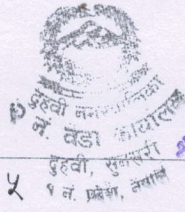 दुहवी नगरपालिका
नं. वडा कार्यालय
दुहवी, सुनसरी
१ नं. प्रदेश, नेपाल
५